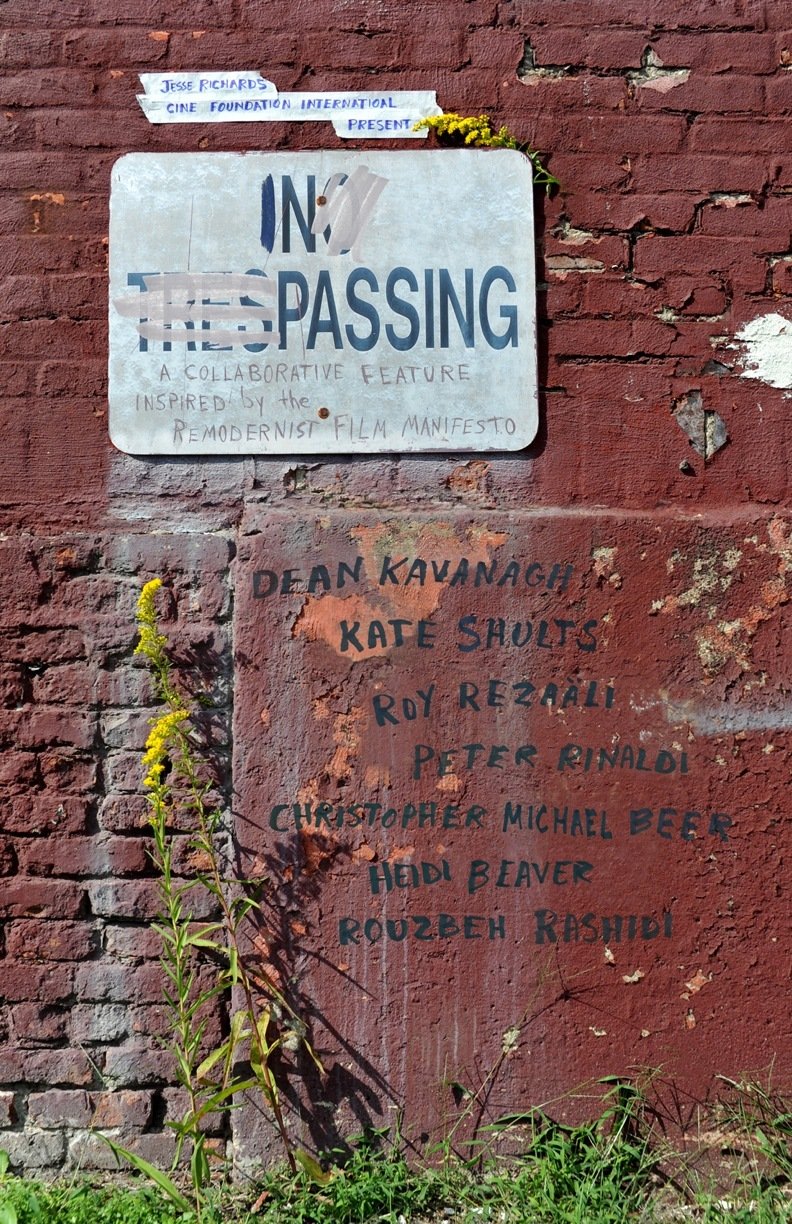 JESSE RICHARDS
CINE FOUNDATION INTERNATIOAL
PRESENT
IN
PASSING
A COLLABORATIVE FEATURE
INSPIRED by the
REMODERNIST FILM MANIFESTO
DEAN KAVANAGH
KATE SHULTS
ROY REZAÄLI
PETER RINALDI
CHRISTOPHER MICHAEL BEER
HEIDI BEAVER
ROUZBEH RASHIDI